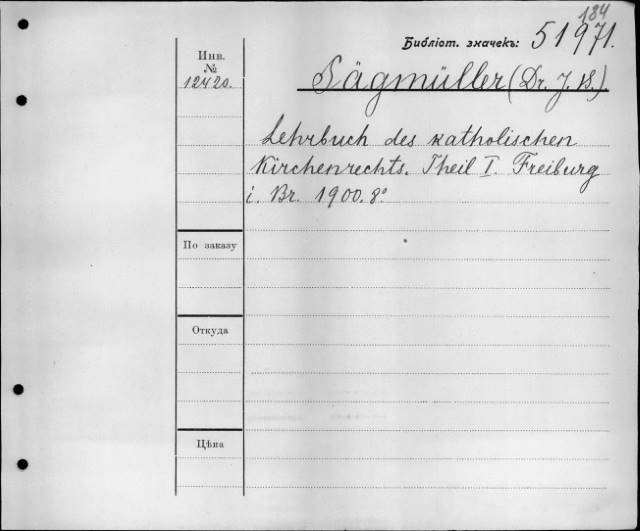 184
Библіот. значекъ: 51971.
Инв.
№
12420.
Sägmüller (Dr. J. B.).
Lehrbuch des katholischen
Kirchenrechts. Theil I. Freiburg
i. Br. 1900. 8°
По заказу
Откуда
Цѣна